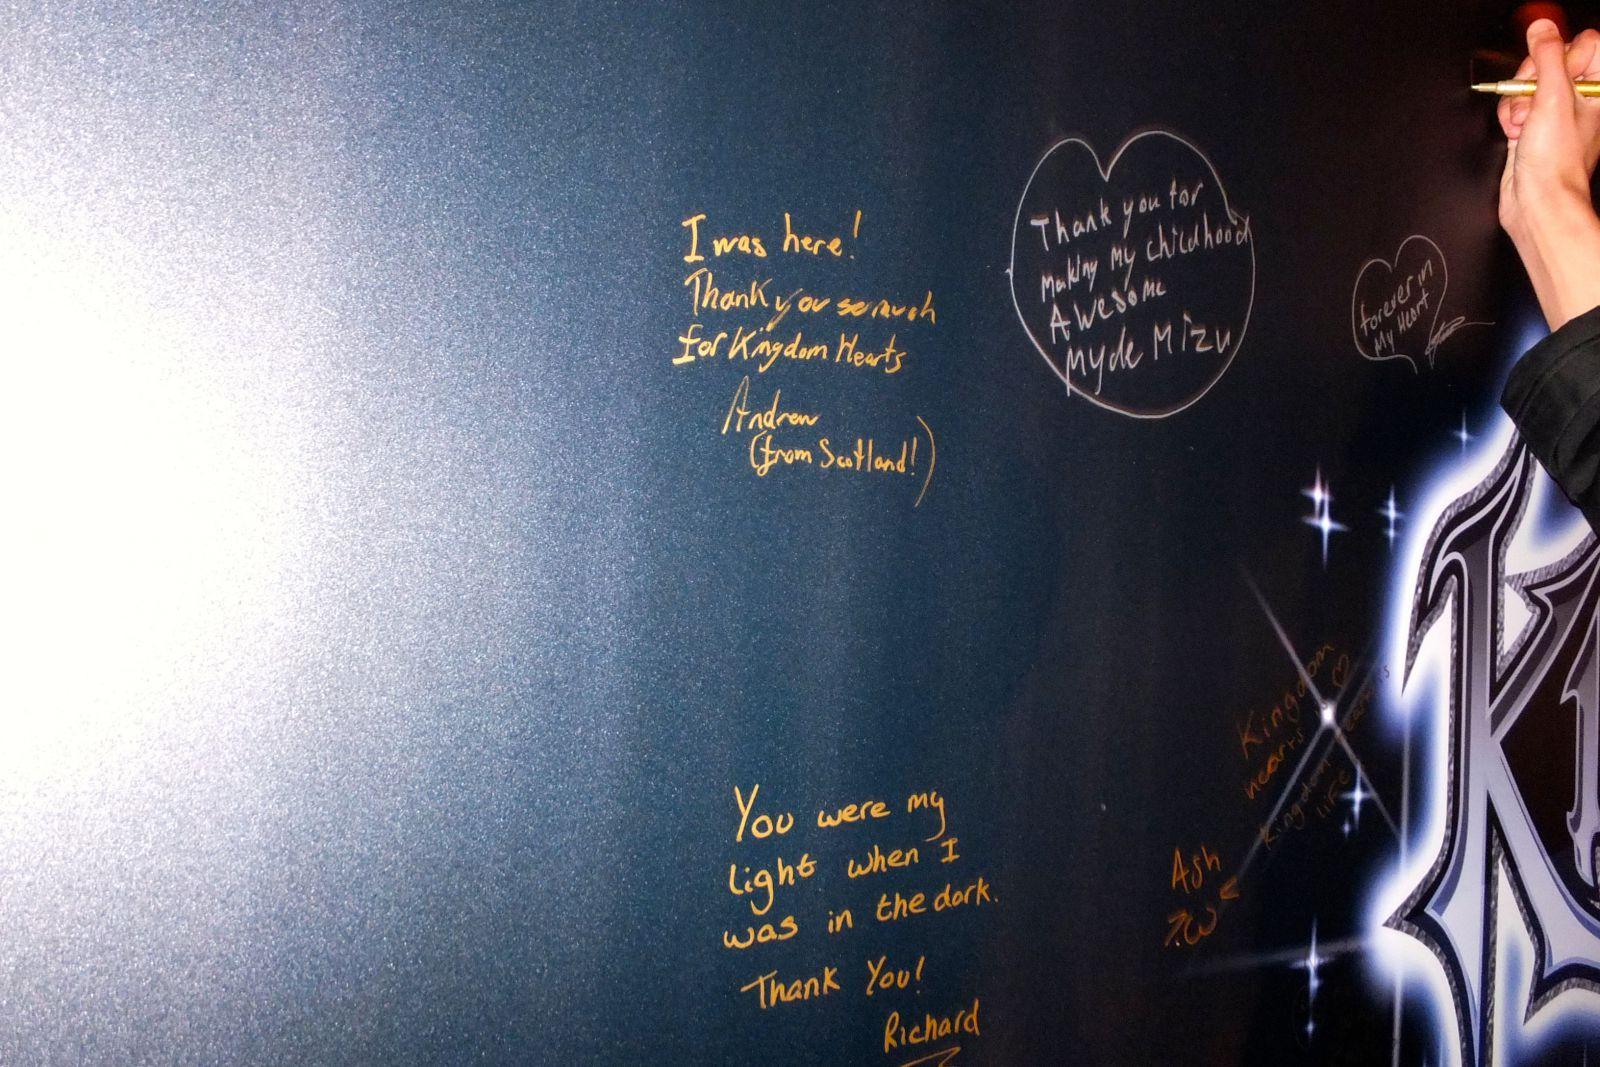 I was here!
Thank you so much
for Kingdom Hearts
Andrew
(from Scotland!)
Thank you for
Making My childhood
Awesome
Myde Mizu
Forever in
My Heart
Kingdom
hearts
Kingdom
life
Ash
You were my
light when I
was in the dark.
Thank You!
Richard